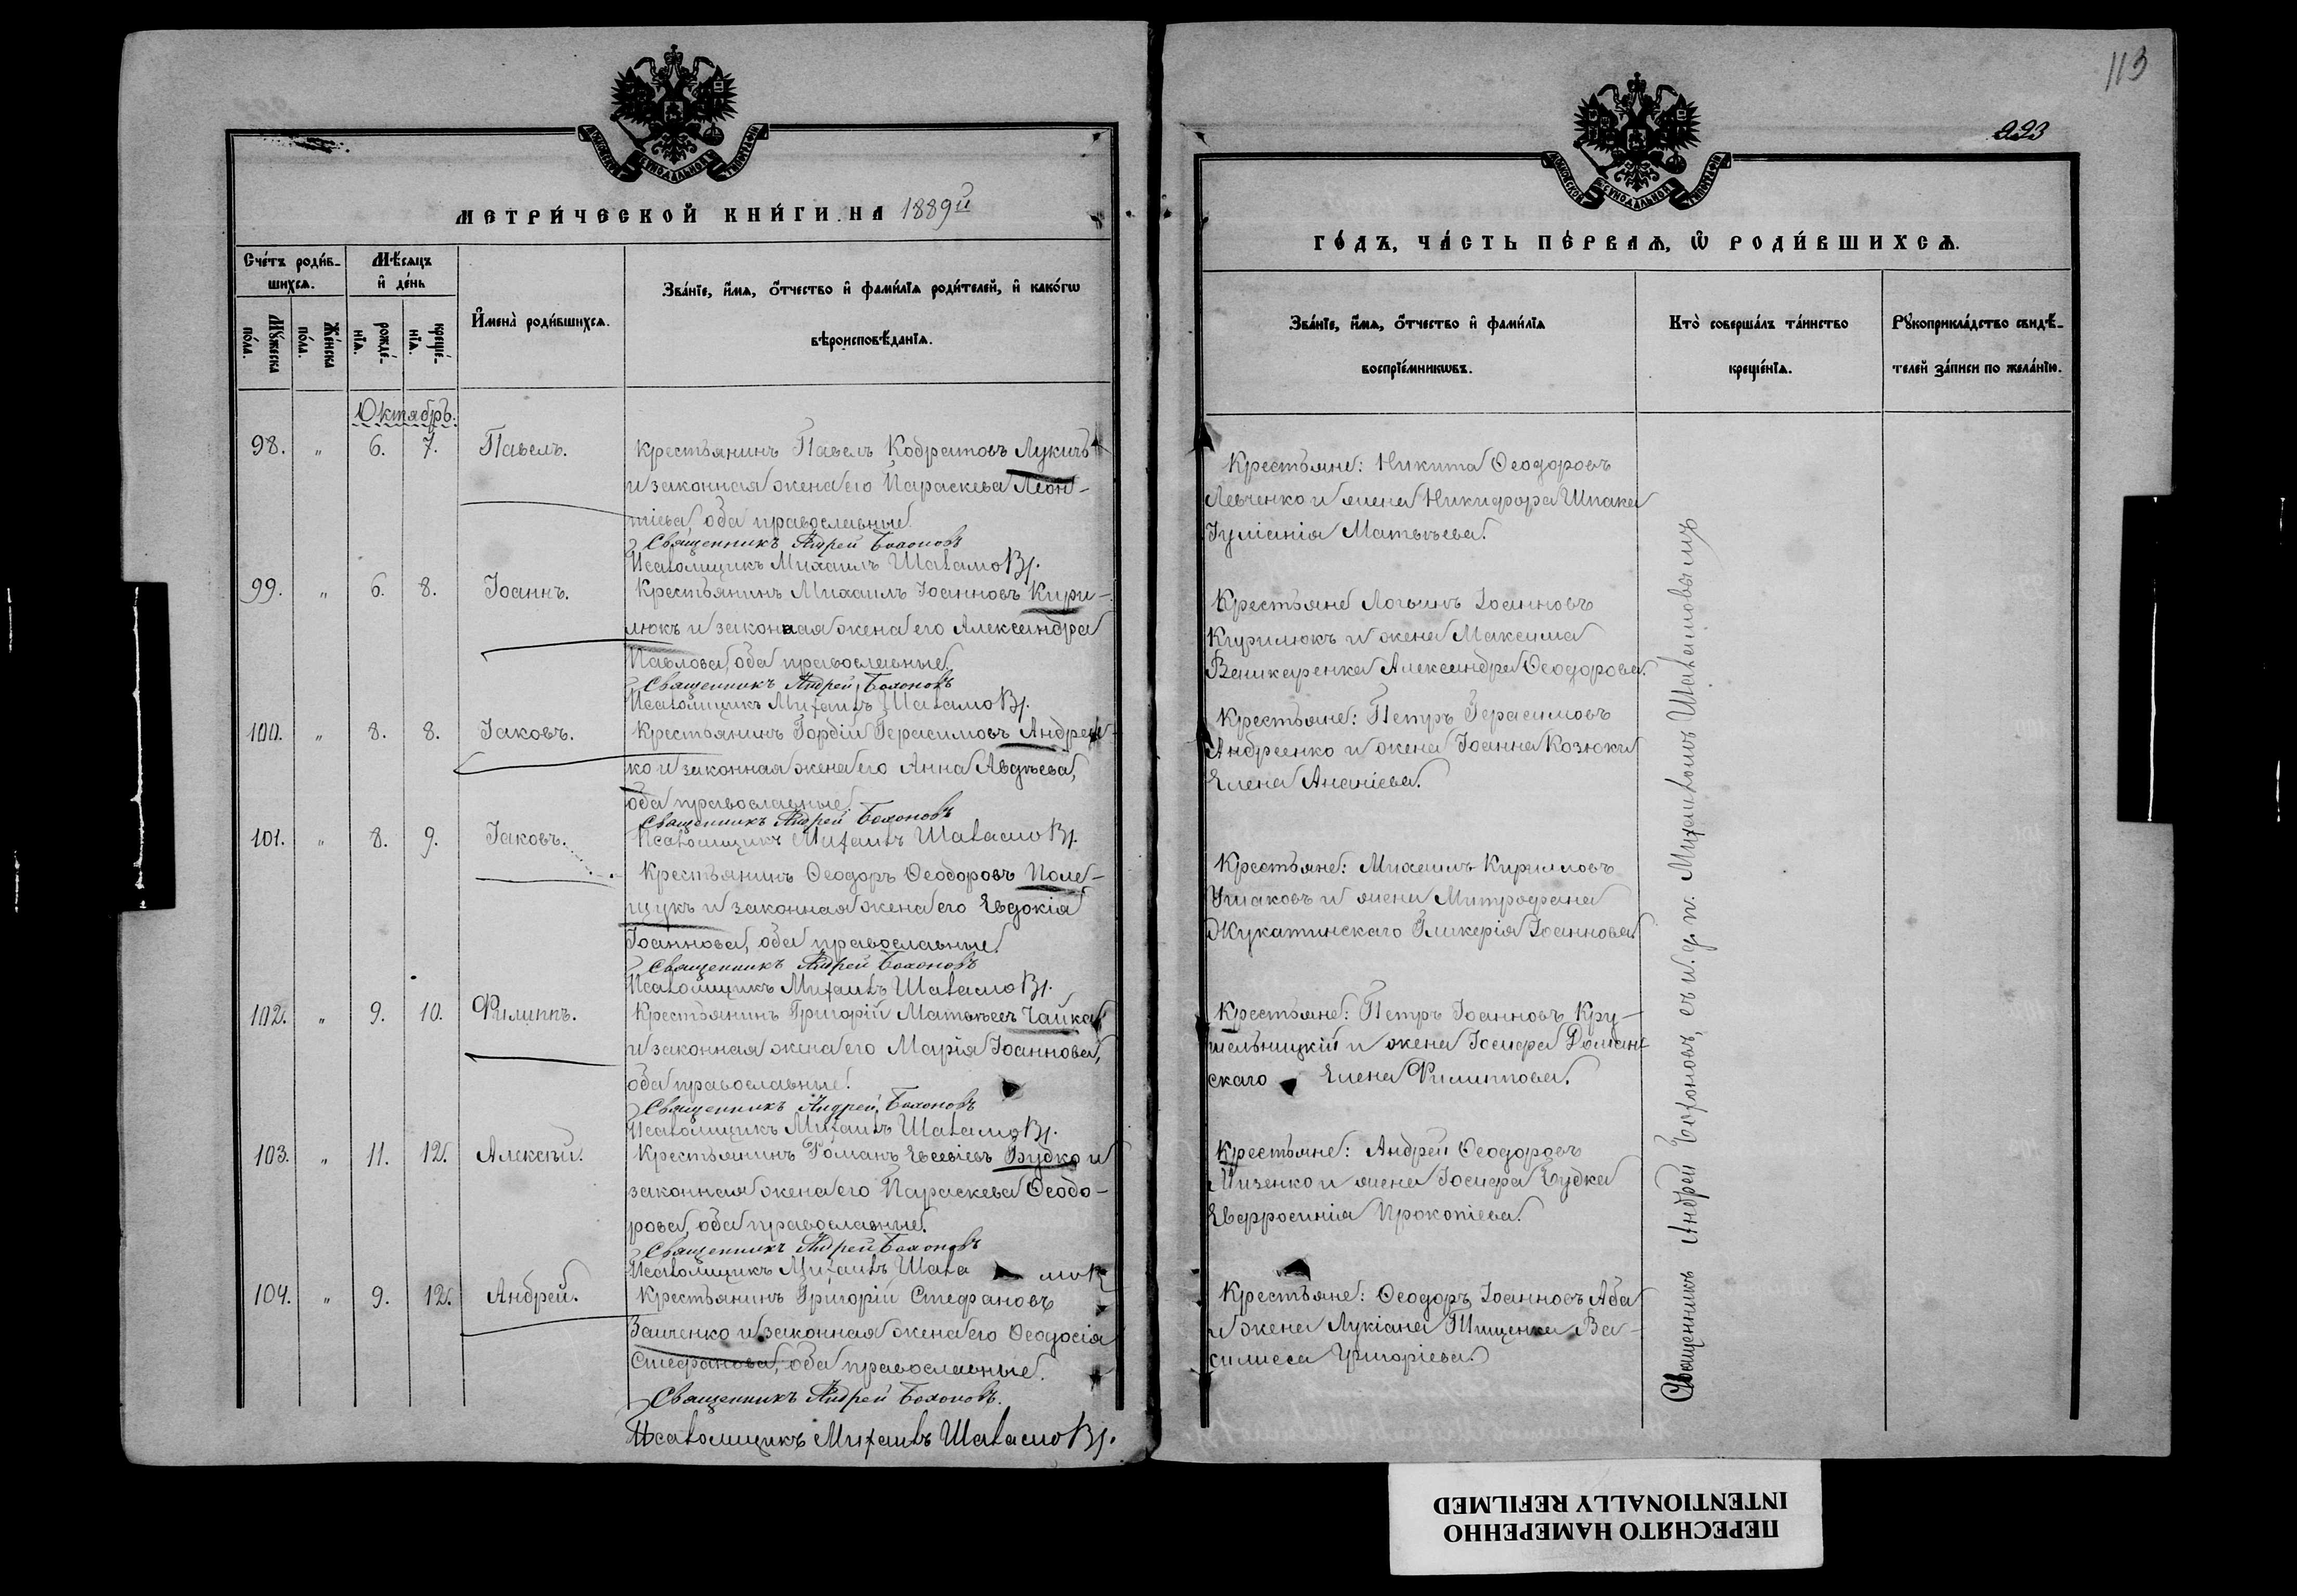 113
223
МЕТРИ́ЧЕСКОЙ КНИ́ГИ НА 1889й
ГО́ДЪ, ЧА́СТЬ ПЕ́РВАЯ, Ѡ РОДИ́ВШИХСЯ.
Сче́тъ роди́в-
шихся.
Мѣ́сяцъ
и де́нь
Мꙋ́жеска
по́ла.
Же́нска
по́ла.
рожде́-
нїя.
креще́-
нїя.
И҆мена̀ роди́вшихся.
Зва́нїе, и҆́мя, ѻ҆́тчество и҆ фами́лїя роди́телей, и҆ како́гѡ
вѣроисповѣ́данїя.
Зва́нїе, и҆́мя, ѻ҆́тчество и҆ фами́лїя
воспрїе́мникѡвъ.
Кто̀ соверша́лъ та́инство
креще́нїя.
Рꙋкоприкла́дство свидѣ́-
телей за́писи по жела́нїю.
Октябрь.
98. " 6. 7. Павелъ.
Крестьянинъ Павелъ Кодратовъ Лукичъ
и законная жена его Параскева Леон-
тіева, оба православные.
Священникъ Андрей Бахоновъ
Псаломщикъ Михаилъ Шаламовъ.
Крестьяне: Никита Ѳеодоровъ
Левченко и жена Никифора Шпака
Іуліанія Матѳеева.
99. " 6. 8. Іоаннъ.
Крестьянинъ Михаилъ Іоанновъ Кири-
люкъ и законная жена его Александра
Павлова, оба православные.
Священникъ Андрей Бахоновъ
Псаломщикъ Михаилъ Шаламовъ.
Крестьяне Логвинъ Іоанновъ
Кирилюкъ и жена Максима
Александра Ѳеодорова.
100. " 8. 8. Іаковъ.
Крестьянинъ Гордій Герасимовъ Андреен-
ко и законная жена его Анна Авдѣева,
оба православные.
Священникъ Андрей Бахоновъ
Псаломщикъ Михаилъ Шаламовъ.
Крестьяне: Петръ Герасимовъ
Андреенко и жена Іоанна Козюки
Елена Ананіева.
101. " 8. 9. Іаковъ.
Крестьянинъ Ѳеодоръ Ѳеодоровъ Поле-
щукъ и законная жена его Евдокія
Іоаннова, оба православные.
Священникъ Андрей Бахоновъ
Псаломщикъ Михаилъ Шаламовъ.
Крестьяне: Михаилъ Кирилловъ
Ушаковъ и жена Митрофана
Жукатинскаго Гликерія Іоаннова.
102. " 9. 10. Филиппъ.
Крестьянинъ Григорій Матѳеевъ Чайка
и законная жена его Марія Іоаннова,
оба православные.
Священникъ Андрей Бахоновъ
Псаломщикъ Михаилъ Шаламовъ.
Крестьяне: Петръ Іоанновъ Кру-
шельницкій и жена Іосифа Доман-
скаго Елена Филиппова.
103. " 11. 12. Алексѣй.
Крестьянинъ Романъ Евсевіевъ Будко и
законная жена его Параскева Ѳеодо-
рова, оба православные.
Священникъ Андрей Бахоновъ
Псаломщикъ Михаилъ Шаламовъ
Крестьяне: Андрей Ѳеодоровъ
Мизенко и жена Іосифа Будка
Евфросинія Прокопіева.
104. " 9. 12. Андрей.
Крестьянинъ Григорій Стефановъ
Заиченко и законная жена его Ѳеодосія
Стефанова, оба православные.
Священникъ Андрей Бахоновъ.
Псаломщикъ Михаилъ Шаламовъ.
Крестьяне: Ѳеодоръ Іоанновъ Аба
и жена Лукіана Тищенка Ва-
силиса Григоріева.
Священникъ Андрей Бахоновъ, съ и. д. п. Михаиломъ Шаламовымъ
ПЕРЕСНЯТО НАМЕРЕННО
INTENTIONALLY REFILMED